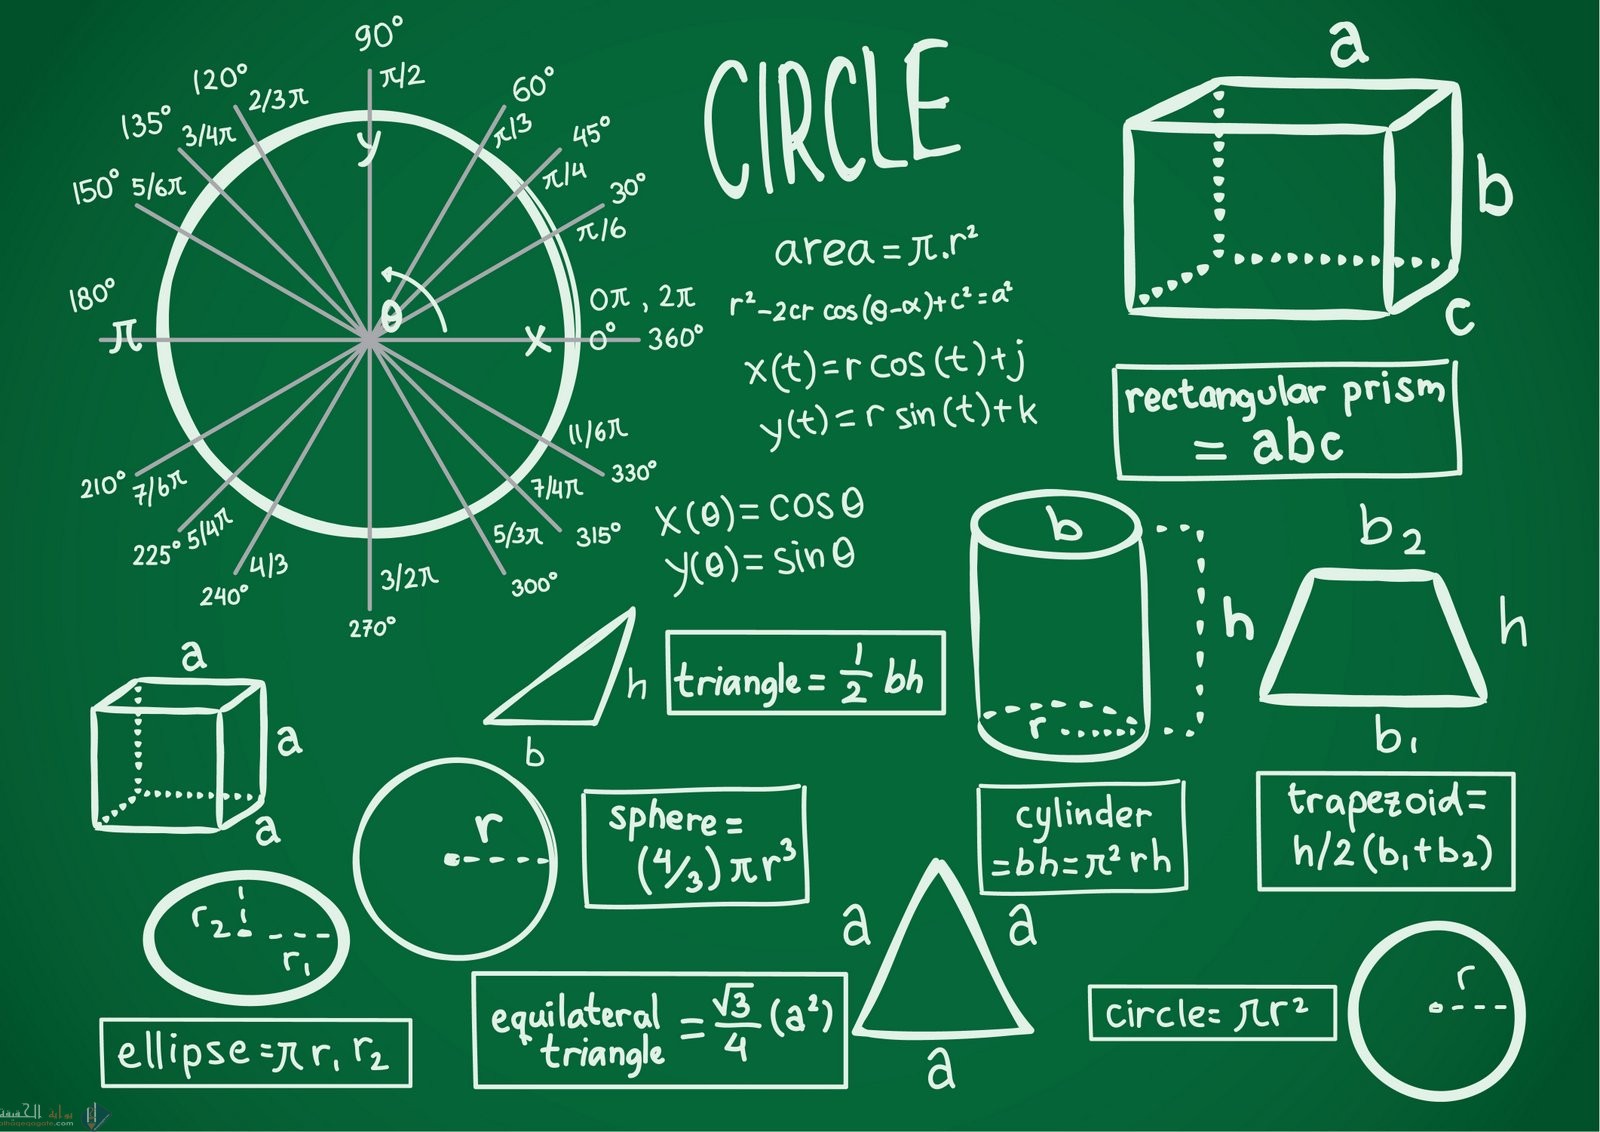 90°
π/2
120°
2/3π
60°
π/3
135°
3/4π
45°
π/4
150°
5/6π
30°
π/6
y
θ
x
180°
π
0π , 2π
0°
360°
210°
7/6π
11/6π
330°
225°
5/4π
7/4π
315°
240°
4/3
5/3π
300°
3/2π
270°
CIRCLE
area = π.r²
r²-2cr cos(θ-α)+c²=a²
x(t)=r cos(t)+j
y(t)=r sin(t)+k
x(θ)=cosθ
y(θ)=sinθ
a
b
c
rectangular prism
= abc
b
h
r
b₂
h
b₁
a
a
a
h
b
triangle = 1/2 bh
r
sphere =
(4/3) πr³
cylinder
=bh=π² rh
trapezoid=
h/2 (b₁+b₂)
r₂
r₁
ellipse =π r₁ r₂
equilateral
triangle
= √3/4 (a²)
a
a
a
circle= πr²
r